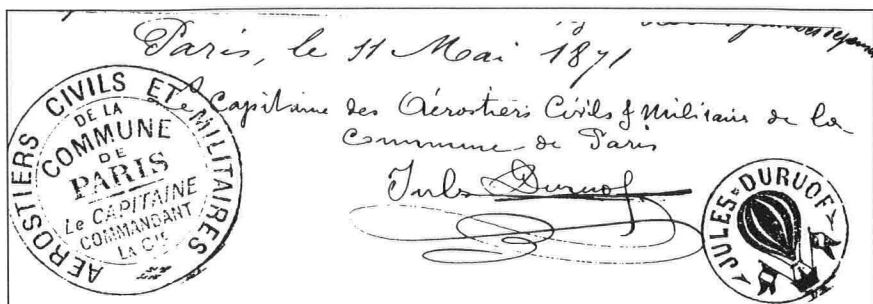 Paris, le 11 Mai 1871
Le Capitaine des Aérostiers Civils & Militaires de la
Commune de Paris
Jules Duruof
AEROSTIERS CIVILS ET MILITAIRES
DE LA
COMMUNE
DE
PARIS
Le CAPITAINE
COMMANDANT
LA Cie
JULES DURUOF